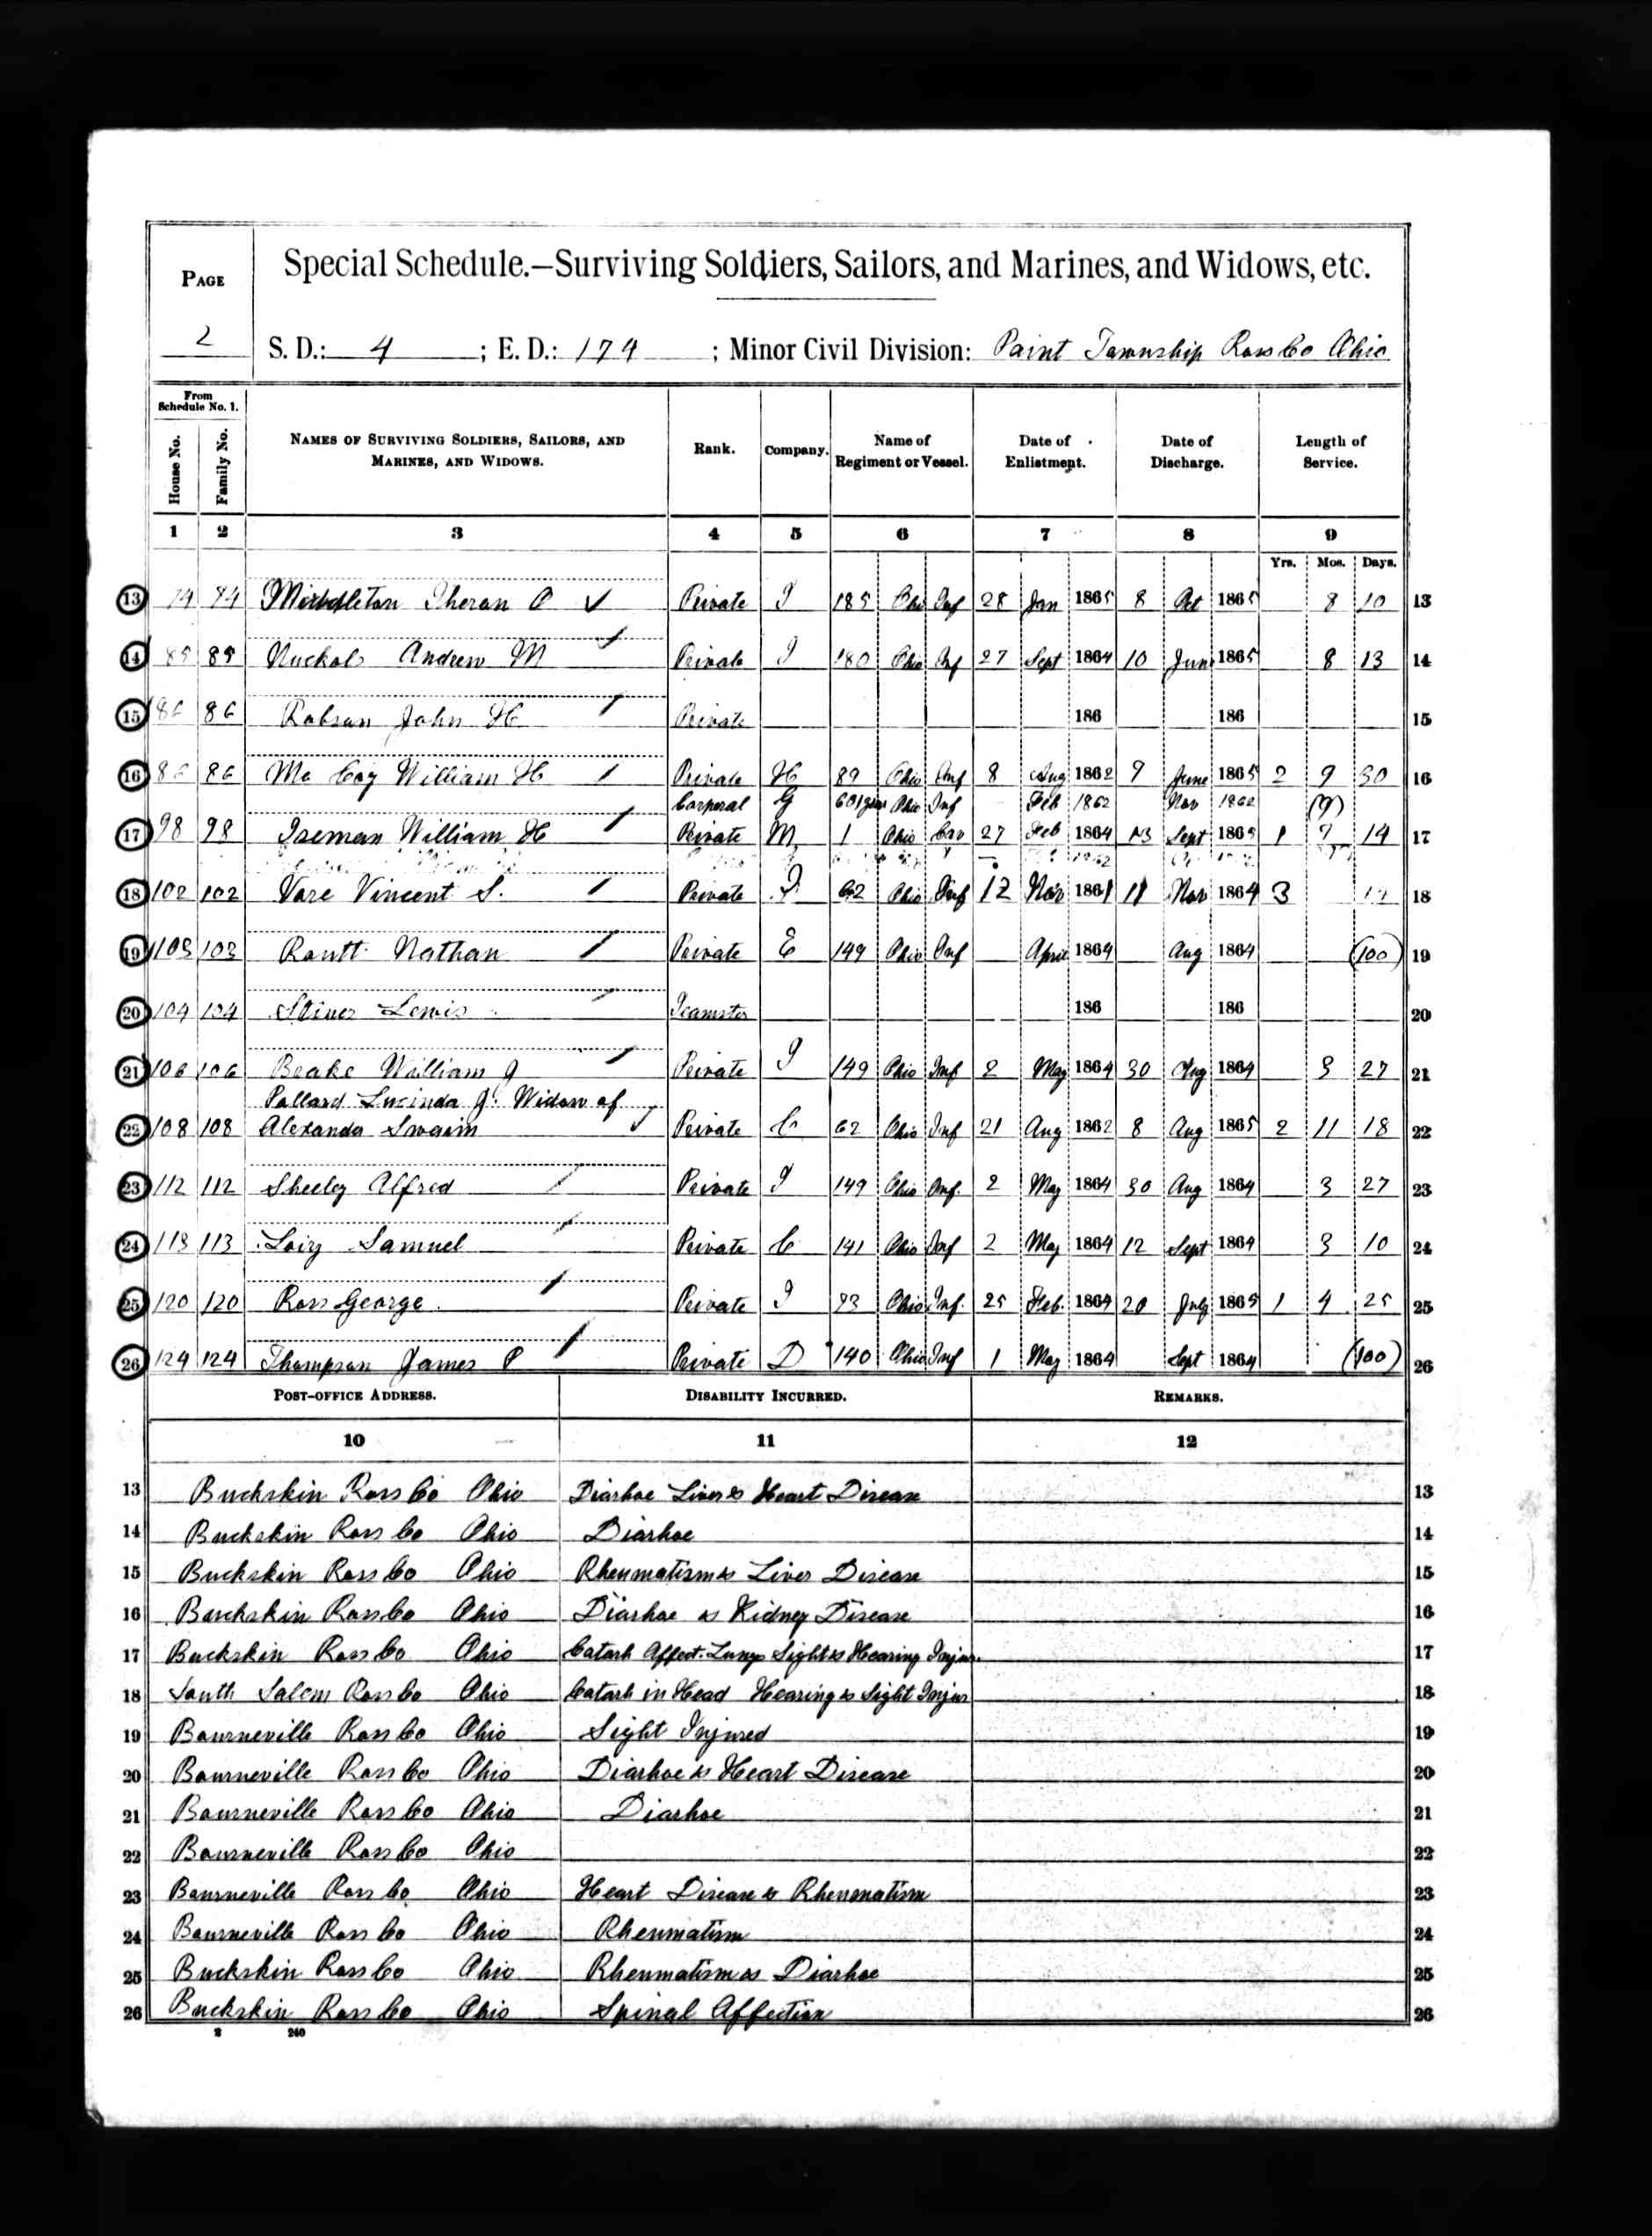 PAGE
2
Special Schedule.—Surviving Soldiers, Sailors, and Marines, and Widows, etc.
S. D.: 4 ; E. D.: 174 ; Minor Civil Division: Paint Township Ross Co Ohio
From Schedule No. 1.
House No.
Family No.
NAMES OF SURVIVING SOLDIERS, SAILORS, AND MARINES, AND WIDOWS.
Rank.
Company.
Name of Regiment or Vessel.
Date of Enlistment.
Date of Discharge.
Length of Service.
1 2 3 4 5 6 7 8 9
Yrs. Mos. Days.
13 Theran O Private I 185 Ohio Inf 28 Jan 1865 8 Oct 1865 8 10 13
14 85 85 Nuckols Andrew M Private I 180 Ohio Inf 27 Sept 1864 10 June 1865 8 13 14
15 86 86 Robson John H Private 186 186 15
16 86 86 Mc Coy William H Private H 89 Ohio Inf 8 Aug 1862 9 June 1865 2 9 30 16
Corporal G 60 Ohio Inf Feb 1862 Nov 1862 (9)
17 98 98 Iseman William H Private M 1 Ohio Cav 27 Feb 1864 13 Sept 1865 1 14 17
18 102 102 Vare Vincent S. Private 62 Ohio Inf 12 Nov 1861 11 Nov 1864 3 18
19 103 103 Routt Nathan Private E 149 Ohio Inf April 1864 Aug 1864 (100) 19
20 104 104 Stiner Lewis Teamster 186 186 20
21 106 106 Beake William J Private I 149 Ohio Inf 2 May 1864 30 Aug 1864 3 27 21
Pollard Lucinda J. Widow of
22 108 108 Alexanda Swaim Private C 62 Ohio Inf 21 Aug 1862 8 Aug 1865 2 11 18 22
23 112 112 Sheeley Alfred Private I 149 Ohio Inf. 2 May 1864 30 Aug 1864 3 27 23
24 113 113 Samuel Private C 141 Ohio Inf 2 May 1864 12 Sept 1864 3 10 24
25 120 120 Ross George Private I Ohio Inf. 25 Feb. 1864 20 July 1865 1 4 25 25
26 124 124 Thompson James P Private D 140 Ohio Inf 1 May 1864 Sept 1864 (100) 26
POST-OFFICE ADDRESS. DISABILITY INCURRED. REMARKS.
10 11 12
13 Buckskin Ross Co Ohio Diarhoe Liver & Heart Disease 13
14 Buckskin Ross Co Ohio Diarhoe 14
15 Buckskin Ross Co Ohio Rheumatism & Liver Disease 15
16 Buckskin Ross Co Ohio Diarhoe & Kidney Disease 16
17 Buckskin Ross Co Ohio Catarh Affect. Lungs Sight & Hearing Injur. 17
18 South Salem Ross Co Ohio Catarh in Head Hearing & Sight Injur 18
19 Bourneville Ross Co Ohio Sight Injured 19
20 Bourneville Ross Co Ohio Diarhoe & Heart Disease 20
21 Bourneville Ross Co Ohio Diarhoe 21
22 Bourneville Ross Co Ohio 22
23 Bourneville Ross Co Ohio Heart Disease & Rheumatism 23
24 Bourneville Ross Co Ohio Rheumatism 24
25 Buckskin Ross Co Ohio Rheumatism & Diarhoe 25
26 Buckskin Ross Co Ohio Spinal Affection 26
2 240